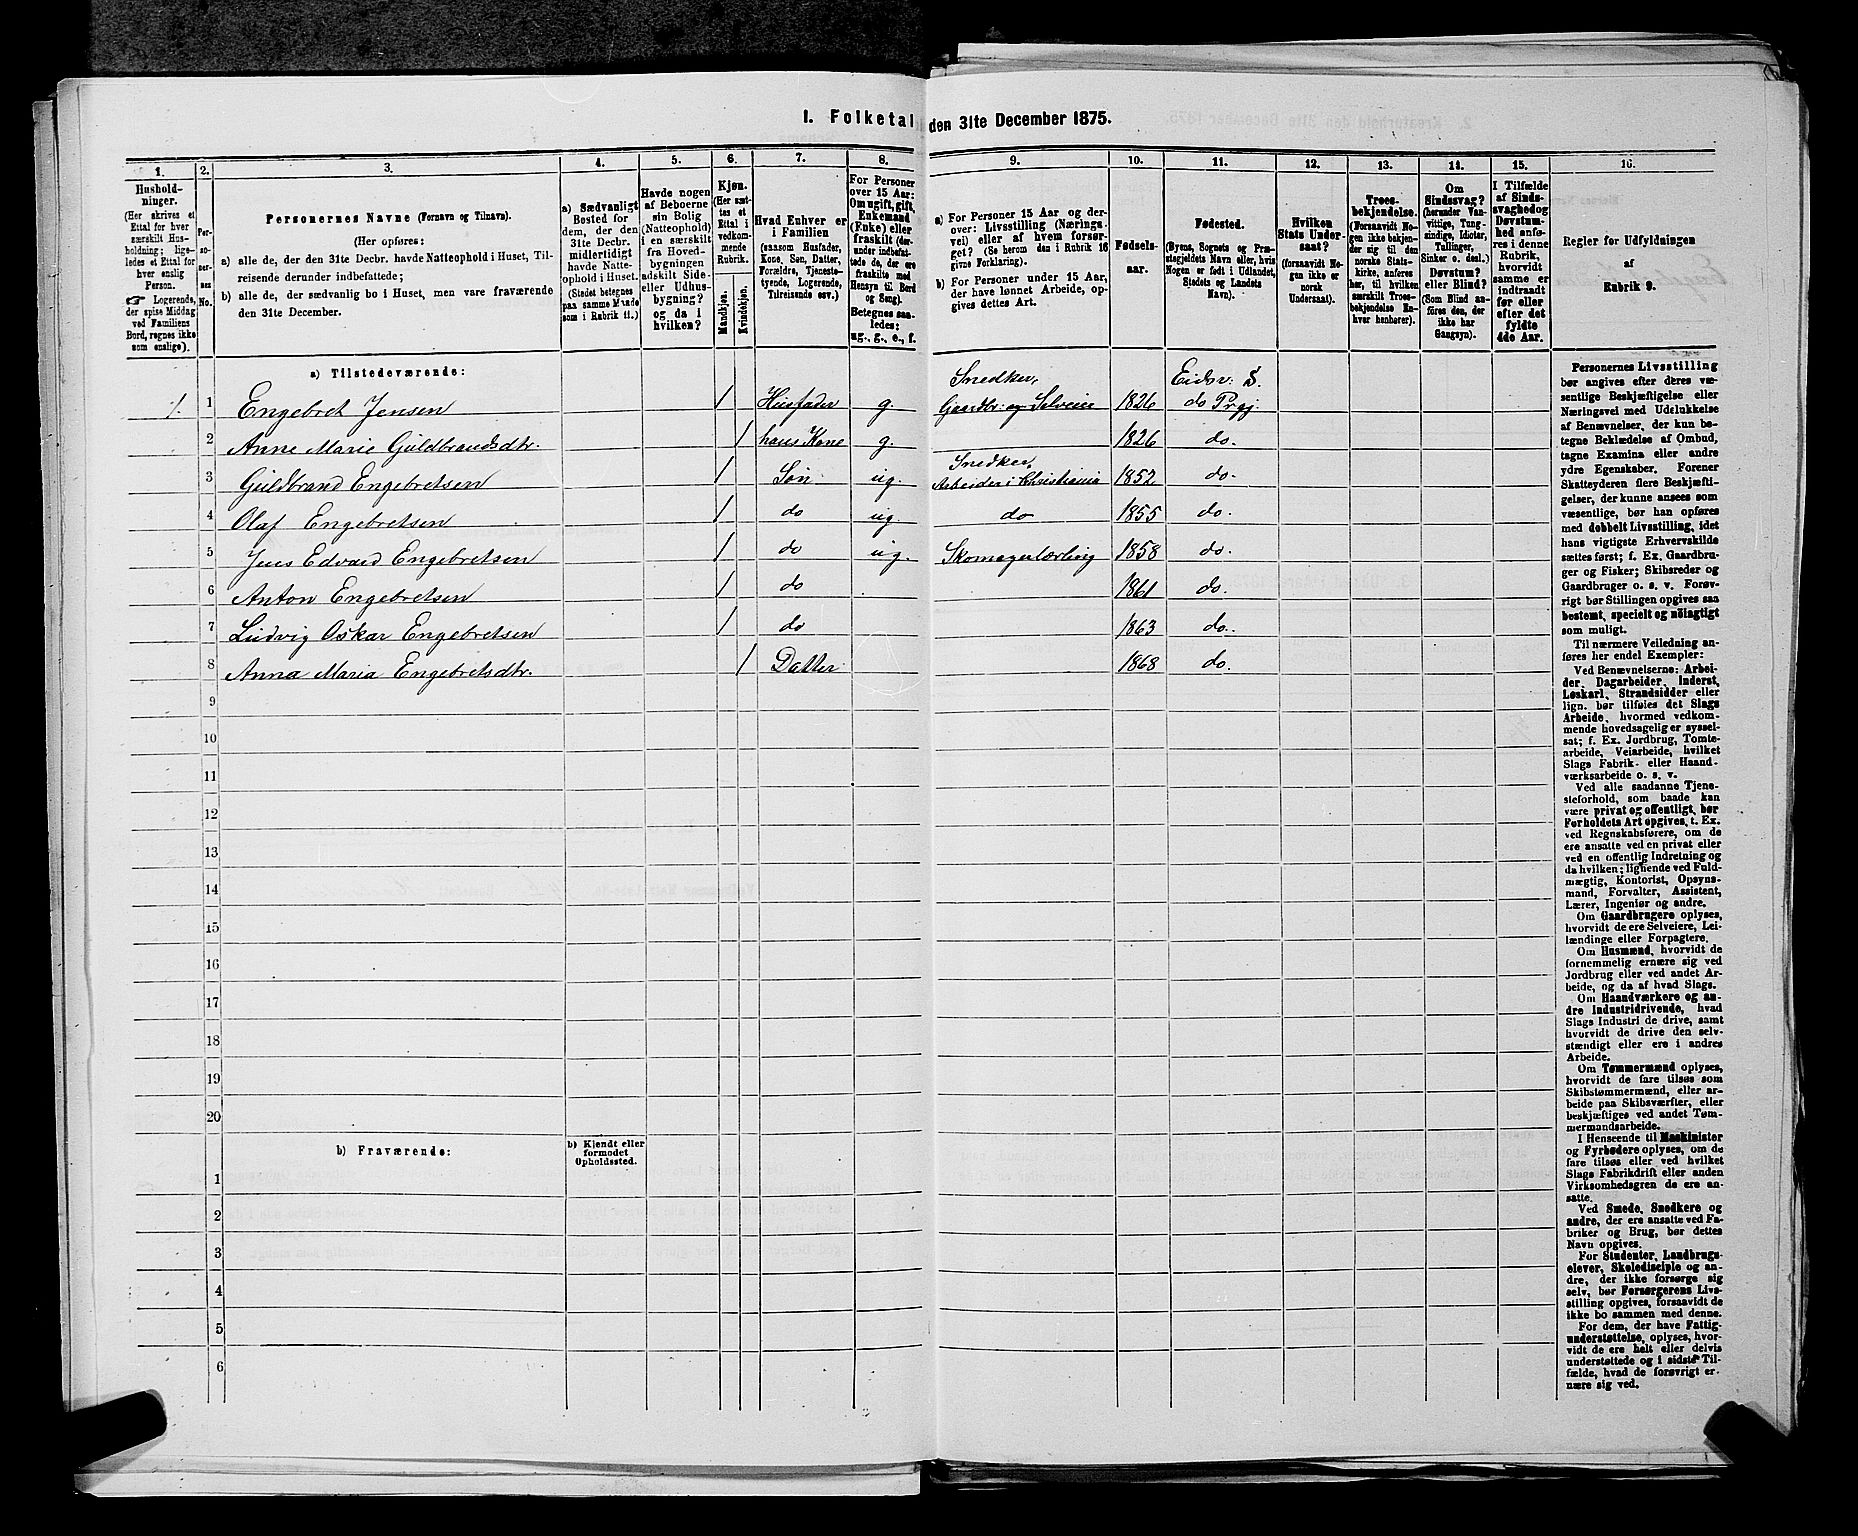 I. Folketal den 31te December 1875.
1.
Hushold-
ninger.
(Her skrives et
Ettal for hver
særskilt Hus-
holdning; lige-
ledes et Ettal for
hver enslig
Person.
☞ Logerende,
der spise Middag
ved Familiens
Bord, regnes ikke
som enslige).
2.
Per-
so-
ner-
nes
No.
3.
Personernes Navne (Fornavn og Tilnavn).
(Her opføres:
a) alle de, der den 31te Decbr. havde Natteophold i Huset, Til-
reisende derunder indbefattede;
b) alle de, der sædvanlig bo i Huset, men vare fraværende
den 31te December.
4.
a) Sædvanligt
Bosted for
dem, der den
31te Decbr.
midlertidigt
havde Natte-
ophold i Huset.
(Stedet betegnes
paa samme Maade
som i Rubrik 11.)
5.
Havde nogen
af Beboerne
sin Bolig
(Natteophold)
i en særskilt
fra Hoved-
bygningen
adskilt Side-
eller Udhus-
bygning?
og da i
hvilken?
6.
Kjøn.
(Her sæt-
tes et
Ettal i
vedkom-
mende
Rubrik.
Mandkjøn.
Kvindekjøn.
7.
Hvad Enhver er
i Familien
(saasom Husfader,
Kone, Søn, Datter,
Forældre, Tjeneste-
tyende, Logerende,
Tilreisende osv.)
8.
For Personer
over 15 Aar:
Om ugift, gift,
Enkemand
(Enke) eller
fraskilt (der-
under indbefat-
tede de, der ere
fraskilte med
Hensyn til Bord
og Seng).
Betegnes saa-
ledes:
ug., g., e., f.
9.
a) For Personer 15 Aar og der-
over: Livsstilling (Nærings-
vei) eller af hvem forsør-
get? (Se herom den i Rubrik 16
givne Forklaring).
b) For Personer under 15 Aar,
der have lønnet Arbeide, op-
gives dettes Art.
10.
Fødsels-
aar.
11.
Fødested.
(Byens, Sognets og Præ-
stegjeldets Navn eller, hvis
Nogen er født i Udlandet,
Stedets og Landets
Navn).
12.
Hvilken
Stats Under-
saat?
(forsaavidt No-
gen ikke er
norsk
Undersaat).
13.
Troes-
bekjendelse.
(Forsaavidt No-
gen ikke bekjen-
der sig til den
norske Stats-
kirke, anføres
her, til hvilken
særskilt Troes-
bekjendelse En-
hver henhører).
14.
Om
Sindssvag?
(herunder Van-
vittige, Tung-
sindige, Idioter,
Tullinger,
Sinker o. desl.)
Døvstum?
eller Blind?
(Som Blind an-
føres den, der
ikke har
Gangsyn).
15.
I Tilfælde
af Sinds-
svaghed og
Døvstum-
hed anfø-
res i denne
Rubrik,
hvorvidt
samme er
indtraadt
før eller
efter det
fyldte
4de Aar.
16.
Regler for Udfyldningen
af
Rubrik 9.
a) Tilstedeværende:
1. 1 Engebret Jensen 1 Husfader g. Snedker, Gaardbr: og Selveier 1826 Eidsv: S. do Prgj.
2 Anne Marie Guldbrandsdtr. 1 hans Kone g. 1826 do.
3 Guldbrand Engebretsen 1 Søn ug. Snedker, Arbeider i Christiania 1852 do.
4 Olaf Engebretsen 1 do ug. do 1855 do.
5 Jens Edvard Engebretsen 1 do ug. Skomagerlærling 1858 do.
6 Anton Engebretsen 1 do 1861 do.
7 Ludvig Oskar Engebretsen 1 do 1863 do.
8 Anna Maria Engebretsdtr. 1 Datter 1868 do.
9
10
11
12
13
14
15
16
17
18
19
20
b) Fraværende:
b) Kjendt eller
formodet
Opholdssted.
1
2
3
4
5
6
Personernes Livsstilling
bør angives efter deres væ-
sentlige Beskjæftigelse eller
Næringsvei med Udelukkelse
af Benævnelser, der kun be-
tegne Beklædelse af Ombud,
tagne Examina eller andre
ydre Egenskaber. Forener
Skatteyderen flere Beskjæfti-
gelser, der kunne ansees som
væsentlige, bør han opføres
med dobbelt Livsstilling, idet
hans vigtigste Erhvervskilde
sættes først; f. Ex. Gaardbru-
ger og Fisker; Skibsreder og
Gaardbruger o. s. v. Forøv-
rigt bør Stillingen opgives saa
bestemt, specielt og nøiagtigt
som muligt.
Til nærmere Veiledning an-
føres her endel Exempler:
Ved Benævnelserne: Arbei-
der, Dagarbeider, Inderst,
Løskarl, Strandsidder eller
lign. bør tilføles det Slags
Arbeide, hvormed vedkom-
mende hovedsagelig er syssel-
sat; f. Ex. Jordbrug, Tomte-
arbeide, Veiarbeide, hvilket
Slags Fabrik- eller Haand-
værksarbeide o. s. v.
Ved alle saadanne Tjene-
steforhold, som baade kan
være privat og offentligt, bør
Forholdets Art opgives, t. Ex.
ved Regnskabsførere, om de
ere ansatte ved en privat eller
ved en offentlig Indretning og
da hvilken; lignende ved Fuld-
mægtig, Kontorist, Opsyns-
mand, Forvalter, Assistent,
Lærer, Ingeniør og andre.
Om Gaardbrugere oplyses,
hvorvidt de ere Selveiere, Lei-
lændinge eller Forpagtere.
Om Husmænd, hvorvidt de
fornemmelig ernære sig ved
Jordbrug eller ved andet Ar-
beide, og da af hvad Slags.
Om Haandværkere og an-
dre Industridrivende, hvad
Slags Industri de drive, samt
hvorvidt de drive den selv-
stændigt eller ere i andres
Arbeide.
Om Tømmermænd oplyses,
hvorvidt de fare tilsøs som
Skibstømmermænd, eller ar-
beide paa Skibsværfter, eller
beskjæftiges ved andet Tøm-
mermandsarbeide.
I Henseende til Maskinister
og Fyrbødere oplyses, om de
fare tilsøs eller ved hvilket
Slags Fabrikdrift eller anden
Virksomhedsgren de ere an-
satte.
Ved Smede, Snedkere og
andre, der ere ansatte ved Fa-
briker og Brug, bør dettes
Navn opgives.
For Studenter, Landbrugs-
elever, Skoledisciple og an-
dre, der ikke forsørge sig
selv, bør Forsørgerens Livs-
stilling opgives, forsaavidt de
ikke bo sammen med denne.
For dem, der have Fattig-
understøttelse, oplyses, hvor-
vidt de ere helt eller delvis
understøttede og i sidste Til-
fælde, hvad de forøvrigt er-
nære sig ved.